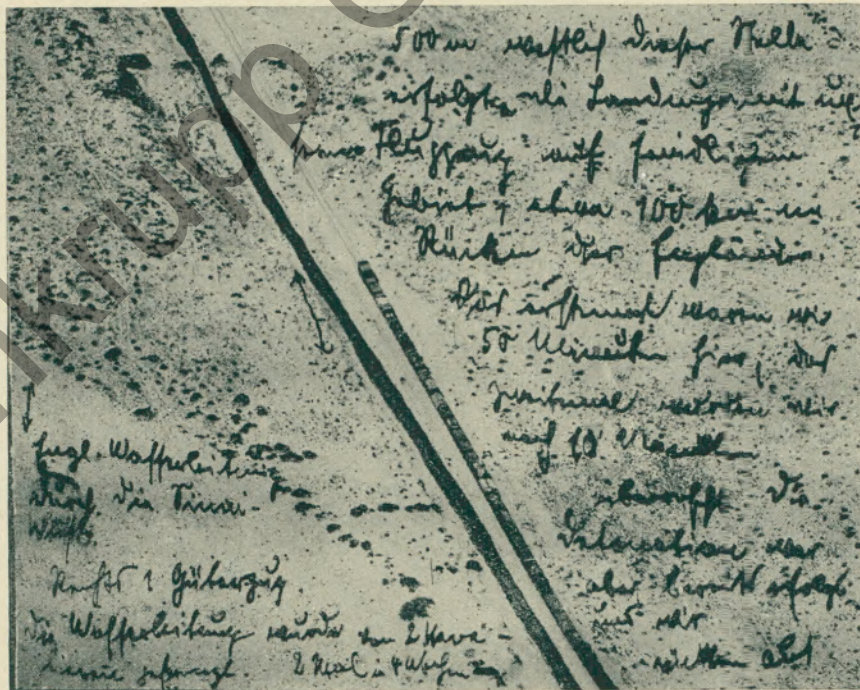 500 m westlich dieser Stelle
erfolgte die Landung mit
Flugzeug auf feindlichem
Gebiet, etwa 100 km im
Rücken der Engländer.
Das erstemal waren wir
50 Minuten hier, das
zweitemal wurden wir
nach 10 Minuten
überrascht. Die
Detonation war
aber bereits erfolgt
und wir
Engl. Wasserleitung
durch die Sinai-
Wüste.
Rechts 1 Güterzug.
Die Wasserleitung wurde von 2
gesprengt. 2 Mal in 4 Wochen
krupp